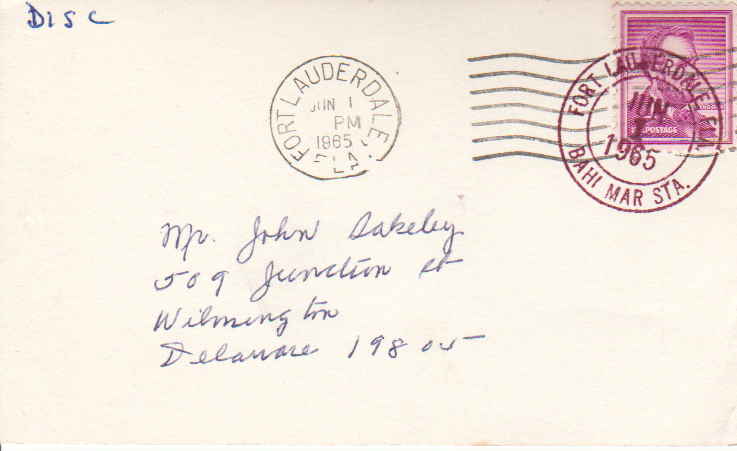 DISC
FORT LAUDERDALE
JUN 1
PM
1965
FLA.
FORT LAUDERDALE, FLA.
JUN
1
1965
BAHI MAR STA.
POSTAGE
Mr. John Dakeley
509 Junction St
Wilmington
Delaware 19805